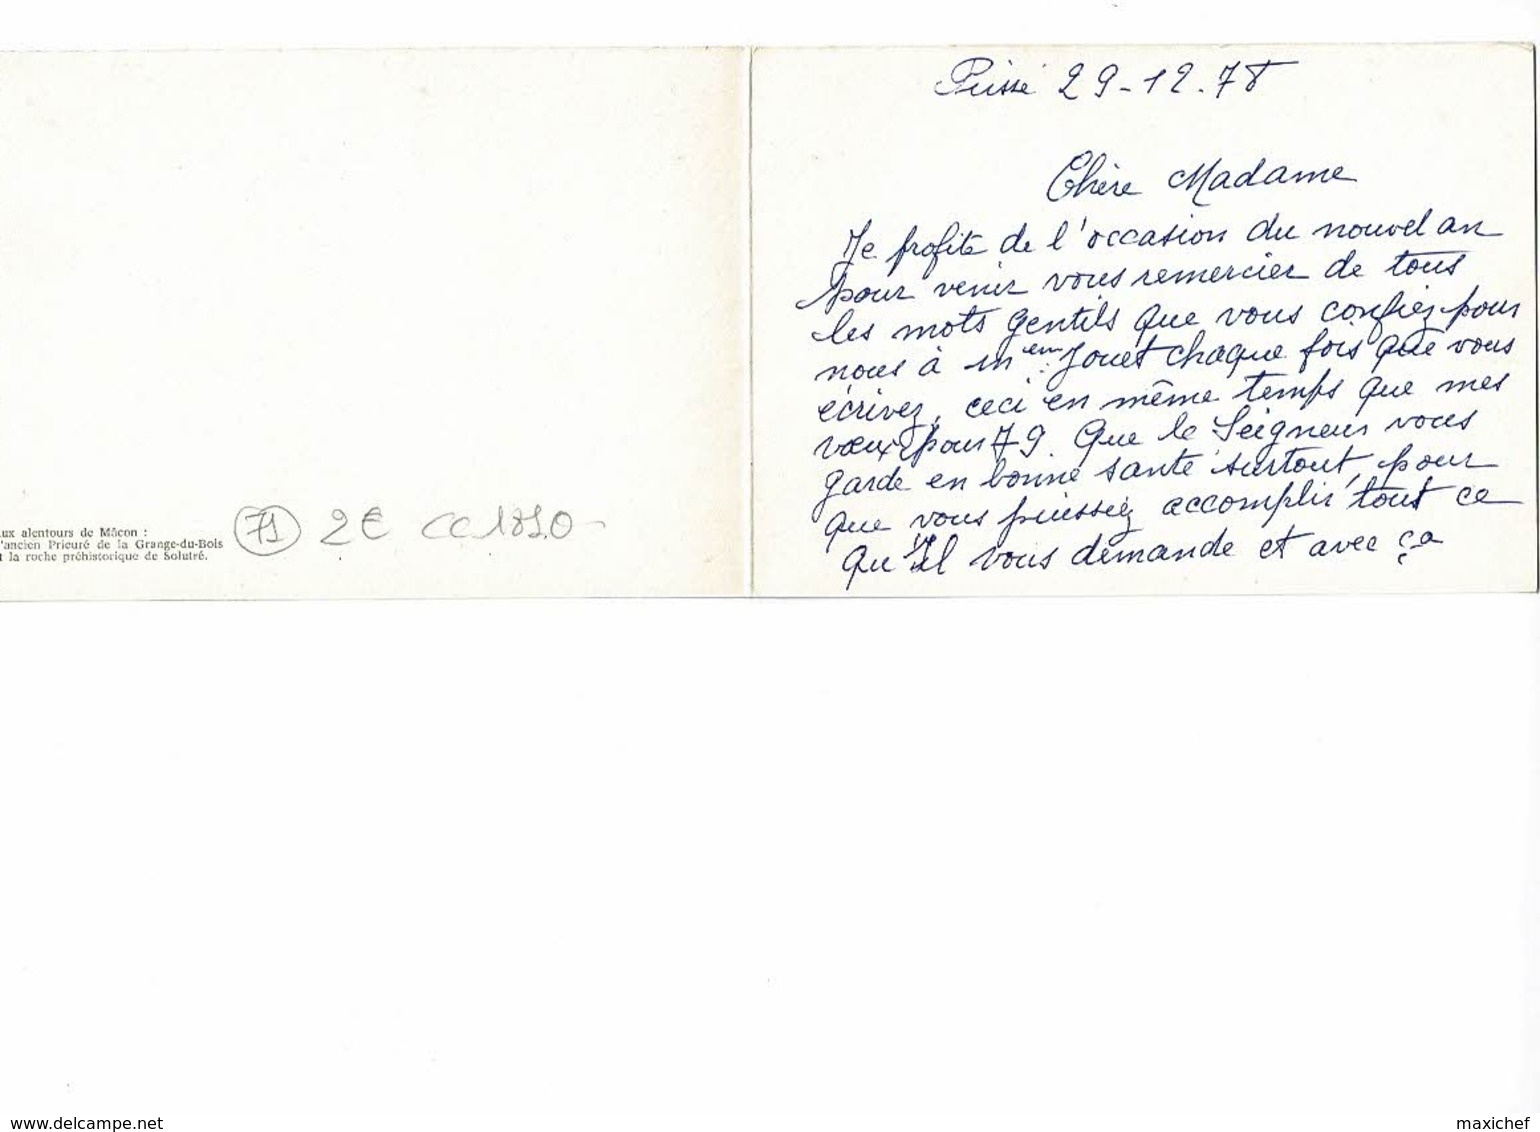 ux alentours de Mâcon :
'ancien Prieuré de la Grange-du-Bois
t la roche préhistorique de Solutré.
71 2€ CC1820-
29-12.78
Chère Madame
Je profite de l'occasion du nouvel an
pour venir vous remercier de tous
les mots gentils que vous confiez pour
nous à Jouet chaque fois que vous
écrivez, ceci en même temps que mes
vœux pour 79. Que le Seigneur vous
garde en bonne santé surtout, pour
que vous puissiez accomplir tout ce
qu'Il vous demande et avec ça
www.delcampe.net
maxichef